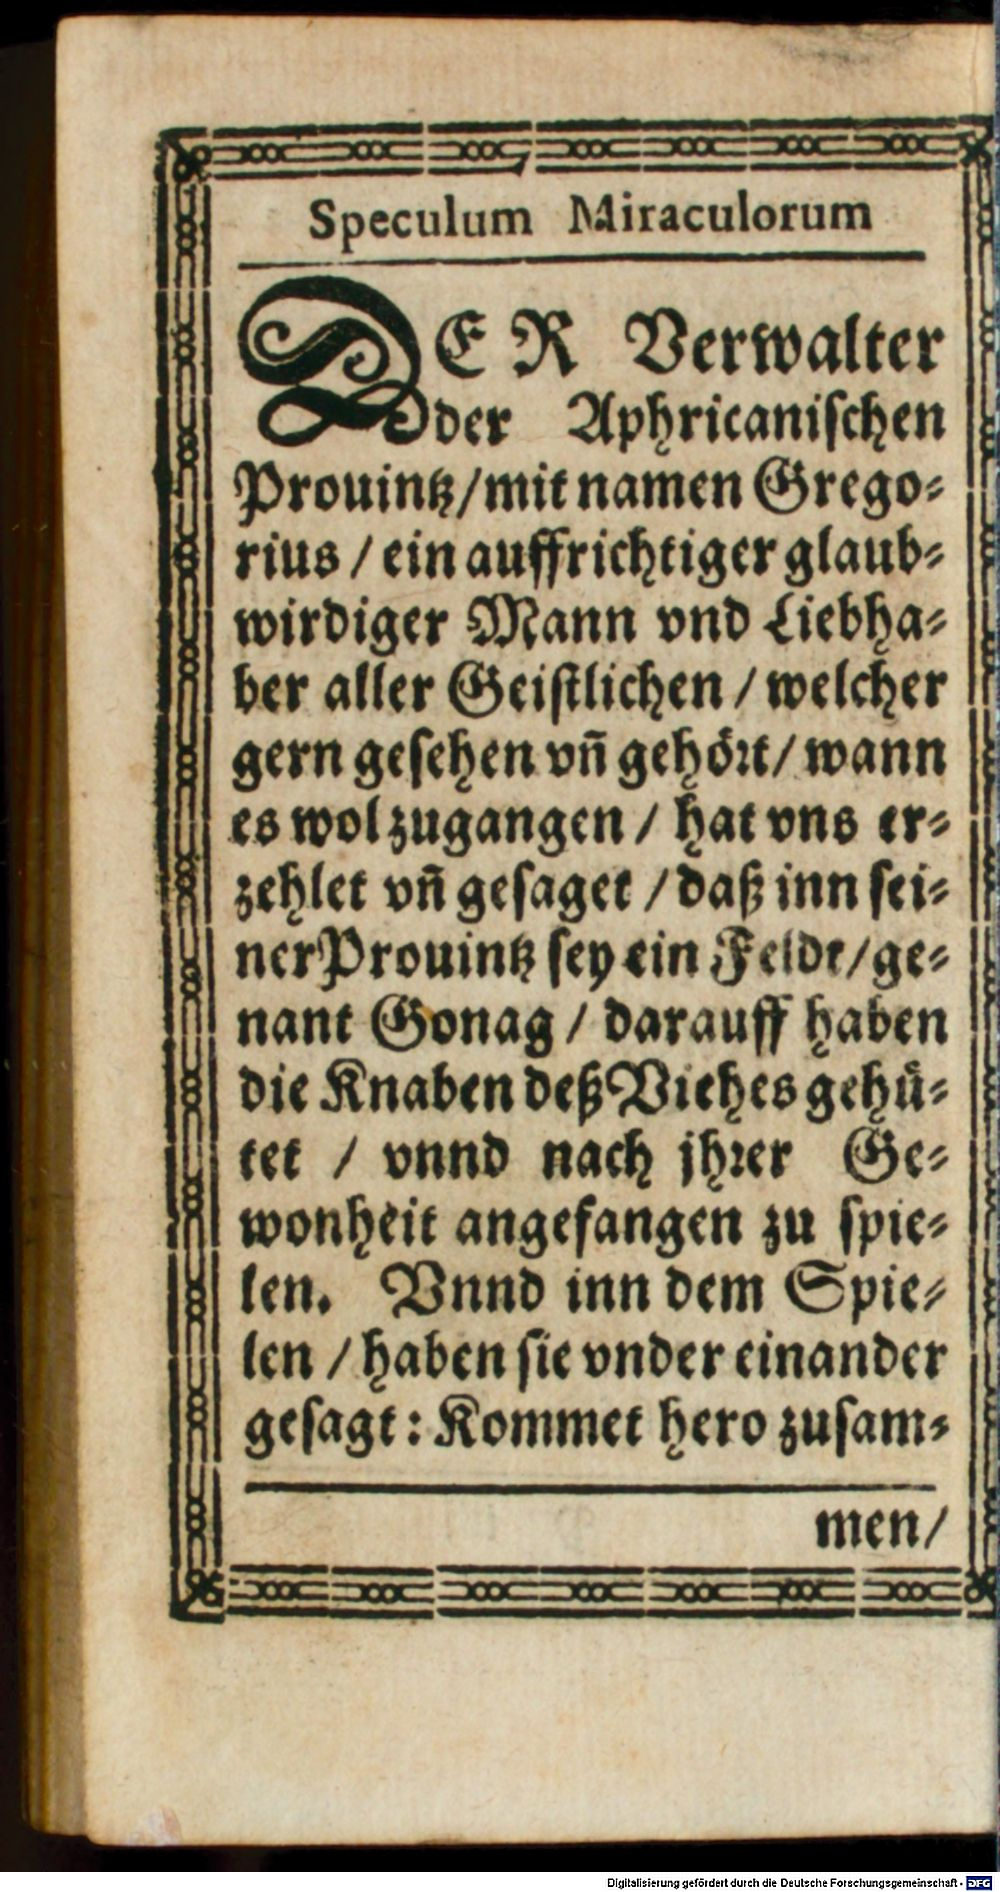 Speculum Miraculorum
DER Verwalter
der Aphricanischen
Prouintz/mit namen Grego⸗
rius / ein auffrichtiger glaub⸗
wirdiger Mann vnd Liebha⸗
ber aller Geistlichen / welcher
gern gesehen vñ gehört/ wann
es wol zugangen / hat vns er⸗
zehlet vñ gesaget / daß inn sei⸗
ner Prouintz sey ein Feldt/ge⸗
nant Gonag / darauff haben
die Knaben deß Viehes gehü⸗
tet / vnnd nach jhrer Ge⸗
wonheit angefangen zu spie⸗
len. Vnnd inn dem Spie⸗
len / haben sie vnder einander
gesagt: Kommet hero zusam⸗
men/
Digitalisierung gefördert durch die Deutsche Forschungsgemeinschaft - DFG